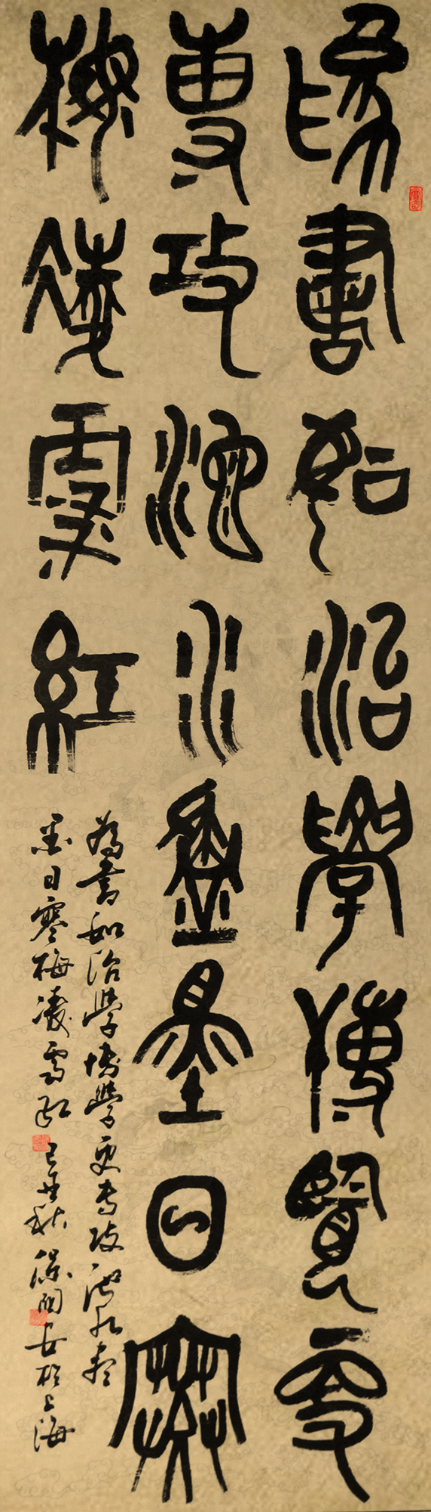 為書如治學博覽更
專攻池水盡墨日寒
梅凌雪紅
為書如治學博學更專攻池水盡
墨日寒梅凌雪紅 己丑秋 於上海